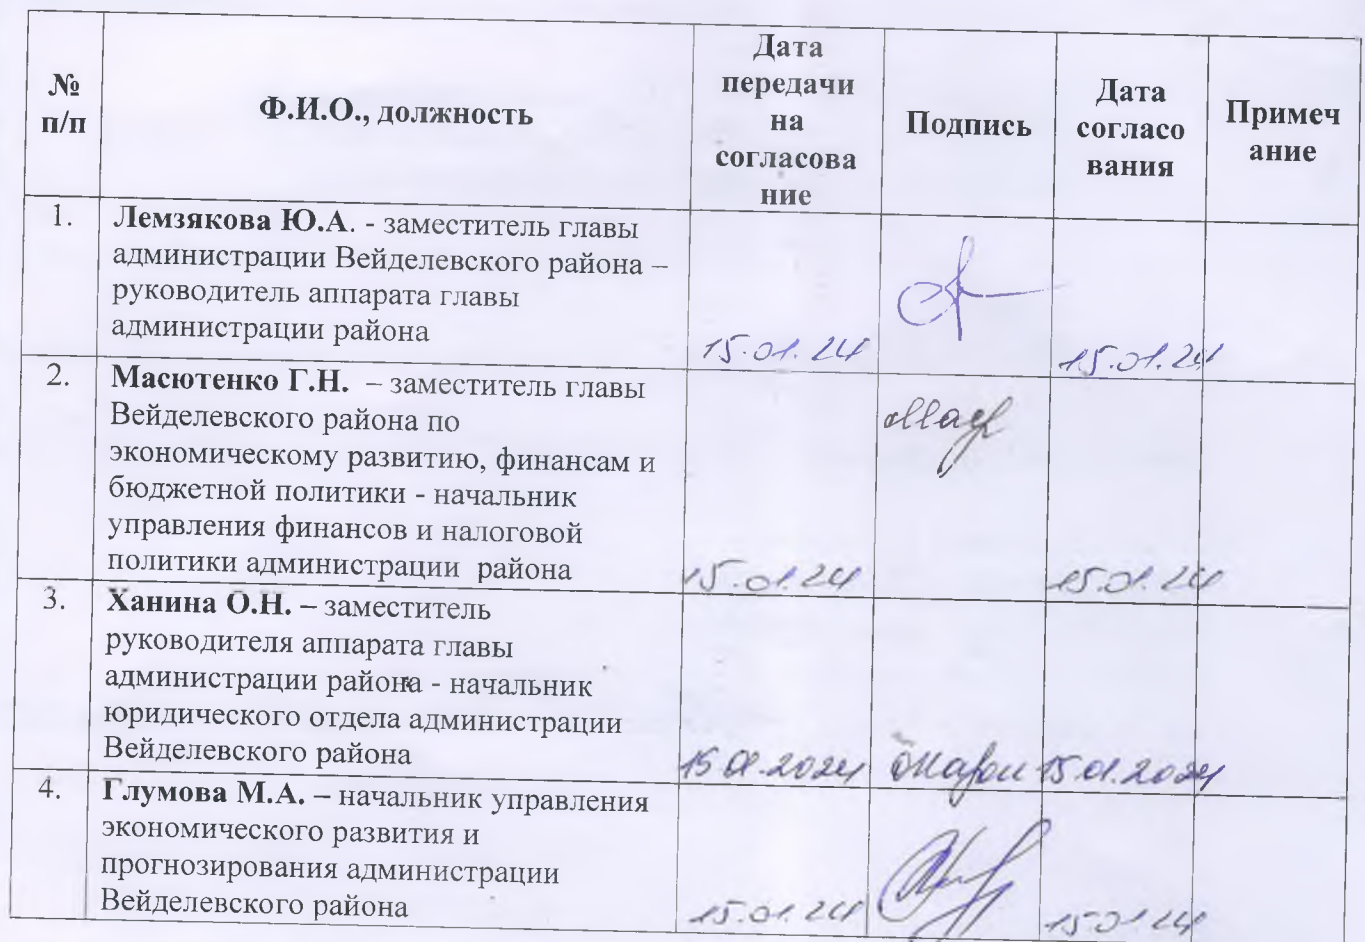 №
п/п
Ф.И.О., должность
Дата
передачи
на
согласова
ние
Подпись
Дата
согласо
вания
Примеч
ание
1.
Лемзякова Ю.А. - заместитель главы
администрации Вейделевского района –
руководитель аппарата главы
администрации района
15.01.24
15.01.24
2.
Масютенко Г.Н. – заместитель главы
Вейделевского района по
экономическому развитию, финансам и
бюджетной политики - начальник
управления финансов и налоговой
политики администрации района
15.01.24
15.01.24
3.
Ханина О.Н. – заместитель
руководителя аппарата главы
администрации района - начальник
юридического отдела администрации
Вейделевского района
15.01.2024
15.01.2024
4.
Глумова М.А. – начальник управления
экономического развития и
прогнозирования администрации
Вейделевского района
15.01.24
15.01.24